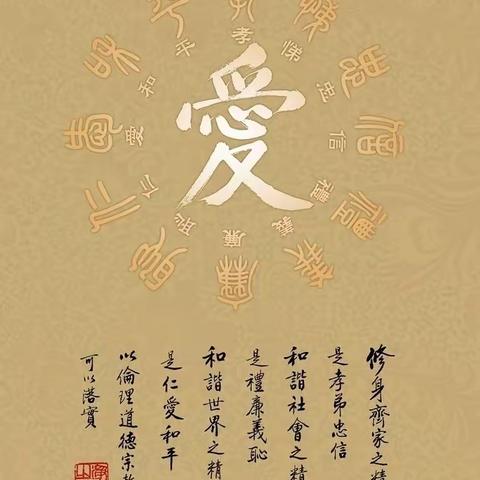 愛
孝
悌
忠
信
禮
義
廉
恥
仁
愛
和
平
修身齊家之精
是孝弟忠信
和諧社會之精
是禮廉義恥
和諧世界之精
是仁愛和平
以倫理道德宗教
可以落實